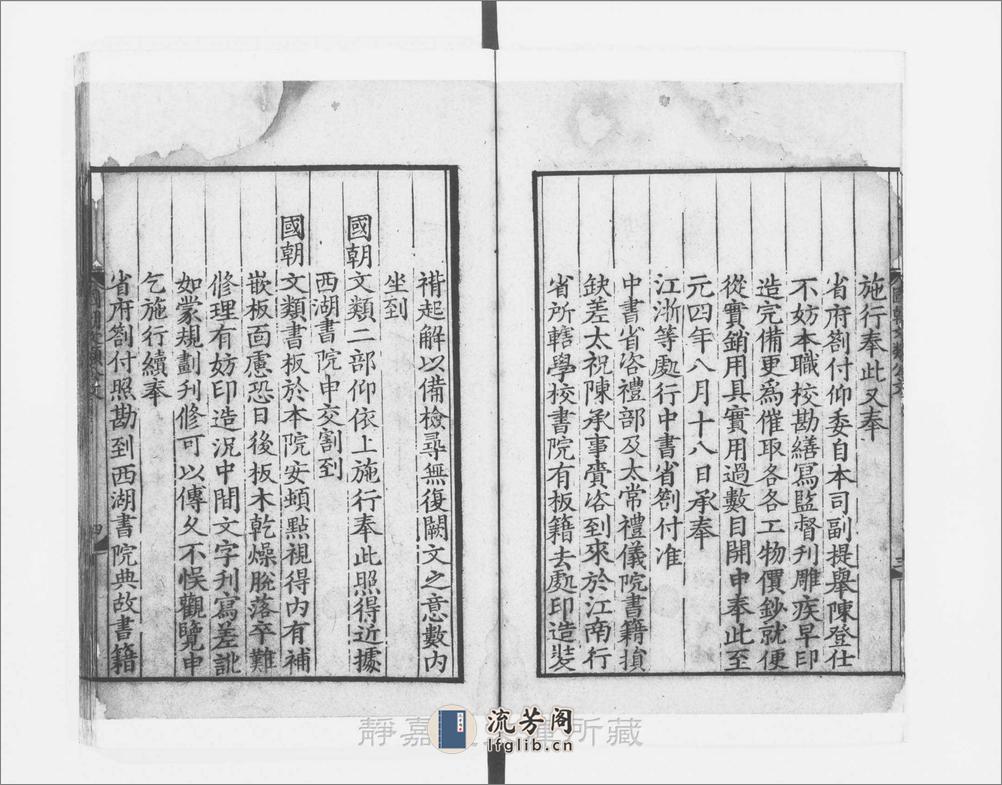 施行奉此又奉
省府劄付仰委自本司副提舉陳登仕
不妨本職校勘繕寫監督刋雕疾早印
造完備更爲催取各各工物價鈔就便
從實銷用具實用過數目開申奉此至
元四年八月十八日承奉
江浙等處行中書省劄付准
中書省咨禮部及太常禮儀院書籍損
缺差太祝陳承事賫咨到來於江南行
省所轄學校書院有板籍去處印造裝
褙起解以備檢尋無復闕文之意數內
坐到
國朝文類二部仰依上施行奉此照得近據
西湖書院申交割到
國朝文類書板於本院安頓點視得內有補
嵌板面慮恐日後板木乾燥脫落卒難
修理有妨印造況中間文字刋寫差訛
如蒙規劃刋修可以傳久不悞觀覽申
乞施行續奉
省府劄付照勘到西湖書院典故書籍
四
三
流芳阁
lfglib.cn
靜嘉 所藏